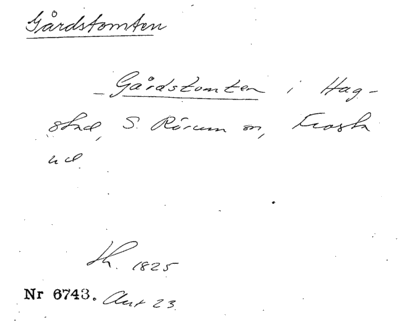 Gårdstomten
Gårdstomten i Hag-
stad, S. Rörum sn, Frosta
hd
1825
Nr 6743. Aut 23